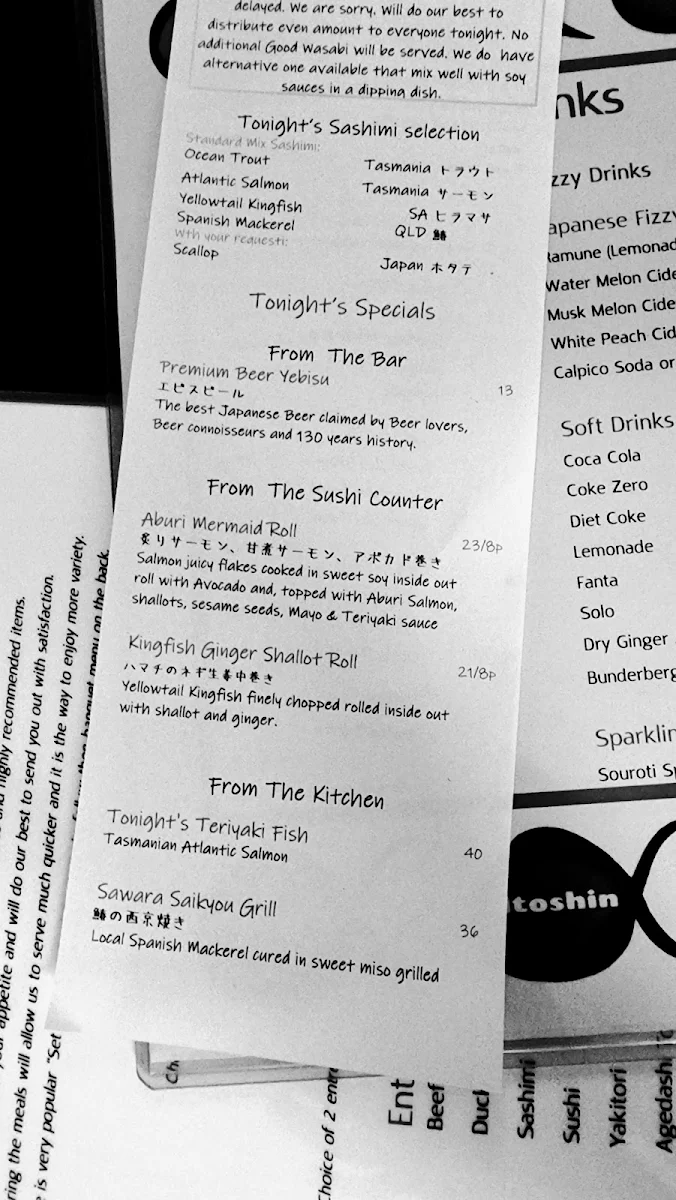 delayed. We are sorry. Will do our best to
distribute even amount to everyone tonight. No
additional Good Wasabi will be served. We do have
alternative one available that mix well with soy
sauces in a dipping dish.
Tonight's Sashimi selection
Standard Mix Sashimi:
Ocean Trout Tasmania トラウト
Atlantic Salmon Tasmania サーモン
Yellowtail Kingfish SA ヒラマサ
Spanish Mackerel QLD 鰆
With your request:
Scallop Japan ホタテ
Tonight's Specials
From The Bar
Premium Beer Yebisu 13
エビスビール
The best Japanese Beer claimed by Beer lovers,
Beer connoisseurs and 130 years history.
From The Sushi Counter
Aburi Mermaid Roll 23/8p
炙りサーモン、甘煮サーモン、アボカド巻き
Salmon juicy flakes cooked in sweet soy inside out
roll with Avocado and, topped with Aburi Salmon,
shallots, sesame seeds, Mayo & Teriyaki sauce
Kingfish Ginger Shallot Roll 21/8p
ハマチのネギ生姜中巻き
Yellowtail Kingfish finely chopped rolled inside out
with shallot and ginger.
From The Kitchen
Tonight's Teriyaki Fish 40
Tasmanian Atlantic Salmon
Sawara Saikyou Grill 36
鰆の西京焼き
Local Spanish Mackerel cured in sweet miso grilled
nks
zzy Drinks
apanese Fizzy
Ramune (Lemonad
Water Melon Cide
Musk Melon Cide
White Peach Cid
Calpico Soda or
Soft Drinks
Coca Cola
Coke Zero
Diet Coke
Lemonade
Fanta
Solo
Dry Ginger
Bunderberg
Sparklin
Souroti Sp
toshin
highly recommended items.
appetite and will do our best to send you out with satisfaction.
ring the meals will allow us to serve much quicker and it is the way to enjoy more variety.
is very popular "Set
banquet menu on the back.
Choice of 2 entr
Ent
Beef
Duck
Sashimi
Sushi
Yakitori
Agedashi